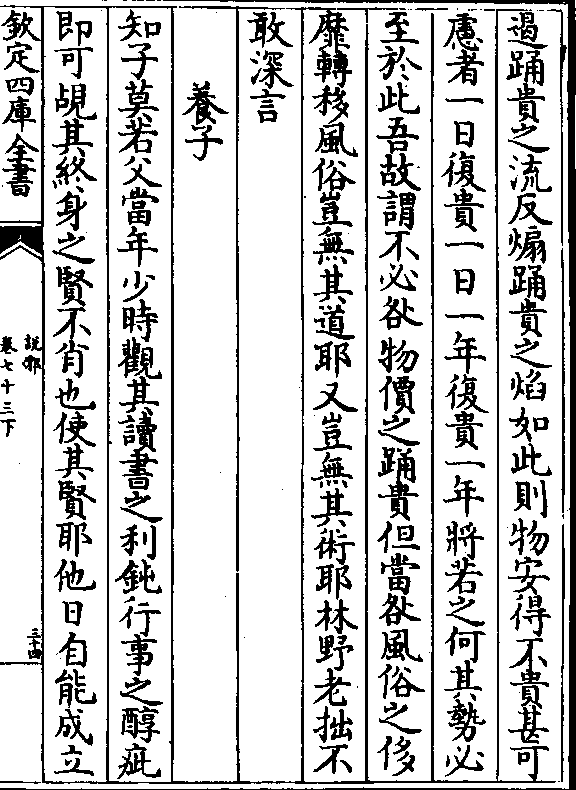 遏踊貴之流反煽踊貴之焰如此則物安得不貴甚可
慮者一日復貴一日一年復貴一年將若之何其勢必
至於此吾故謂不必咎物價之踊貴但當咎風俗之侈
靡轉移風俗豈無其道耶又豈無其術耶林野老拙不
敢深言
養子
知子莫若父當年少時觀其讀書之利鈍行事之醇疵
即可覘其終身之賢不肖也使其賢耶他日自能成立
欽定四庫全書
說郛
卷七十三下
三十四